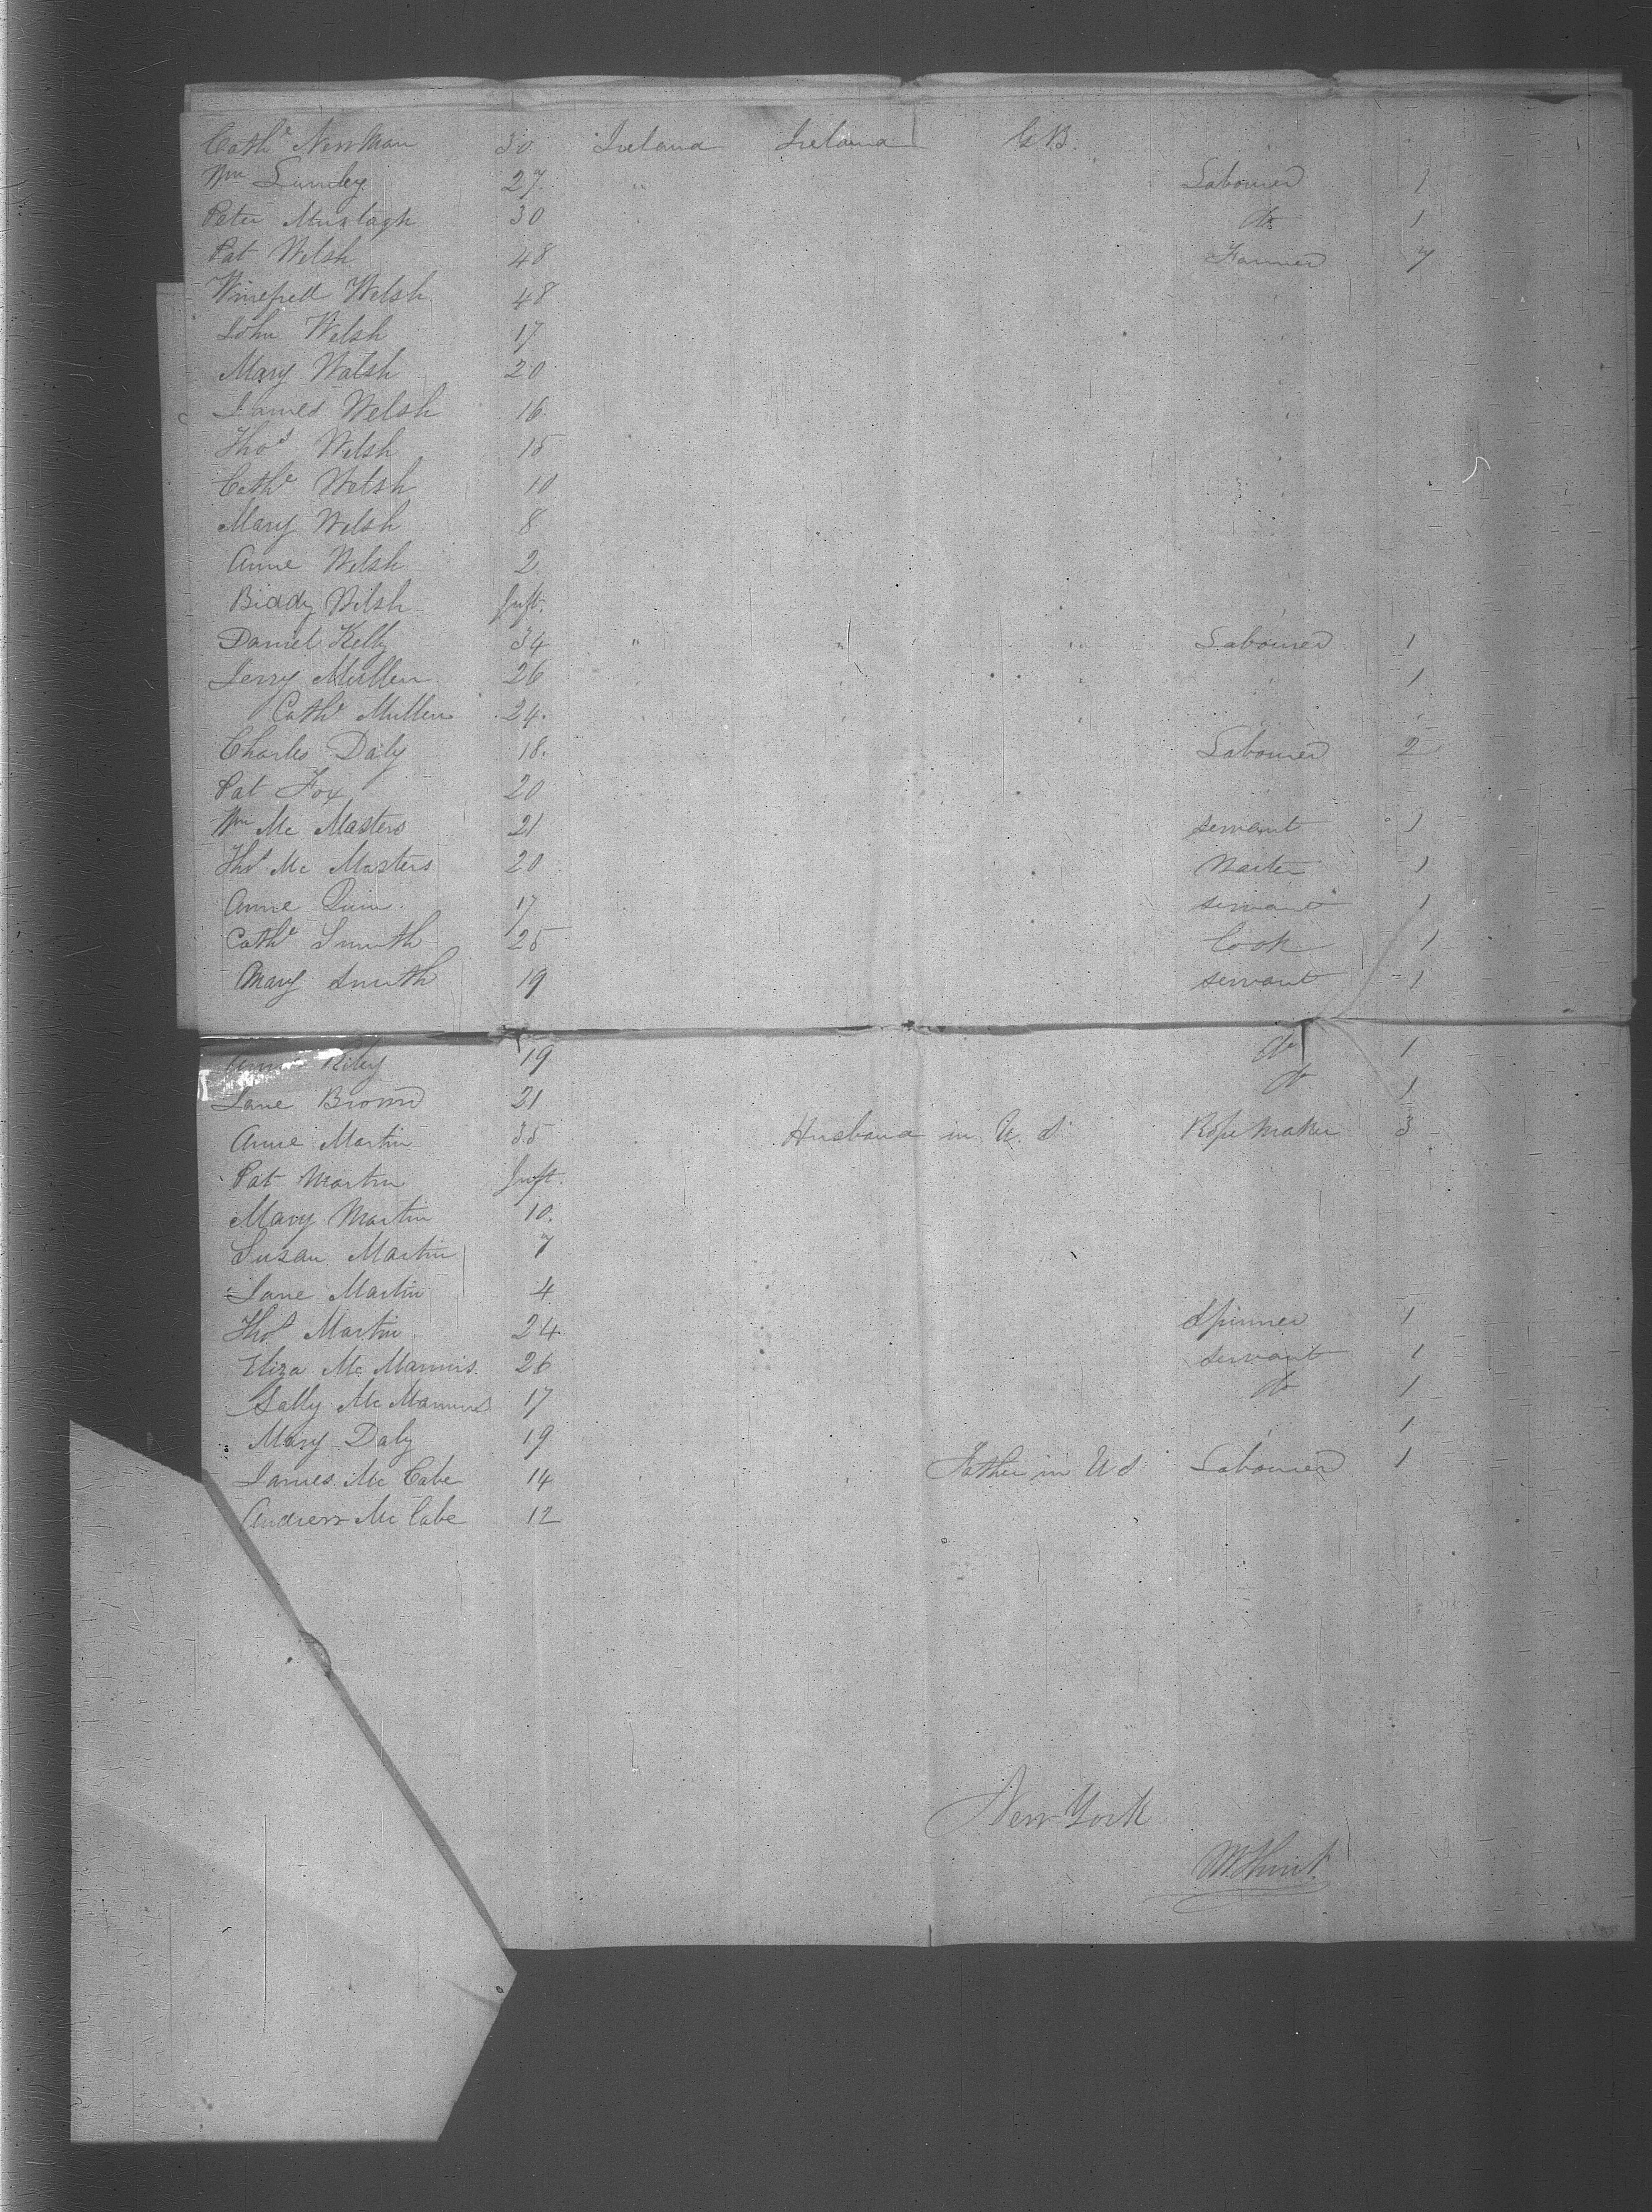 Cathe Newman 30 Ireland Ireland G B.
Wm Lumley 27 " Labourer 1
Peter Murtagh 30 do 1
Pat Welsh 48 Farmer 7
Winefred Welsh 48
John Welsh 17
Mary Walsh 20
James Welsh 16
Thos Welsh 15
Cathe Welsh 10
Mary Welsh 8
Anne Welsh 2
Biddy Welsh Inft.
Daniel Kelly 34 " " " Labourer 1
Jerry Mullen 26 " " " " 1
Cathe Mullen 24. " " "
Charles Daly 18. Labourer 2
Pat Fox 20
Wm Mc Masters 21 servant 1
Thos Mc Masters 20 Waiter 1
Anne Quin. 17 servant 1
Cathe Smith 25 Cook 1
Mary Smith 19 servant 1
Riley 19 do 1
Jane Brown 21 do 1
Anne Martin 35 Husband in U. S. Rope Maker 3
Pat Martin Inft.
Mary Martin 10.
Susan Martin 7
Jane Martin 4
Thos Martin 24 Spinner 1
Eliza Mc Mannis. 26 servant 1
Sally Mc Mannus 17 do 1
Mary Daly 19 " 1
James Mc Cabe 14 Father in U S Labourer 1
Andrew Mc Cabe 12
New York